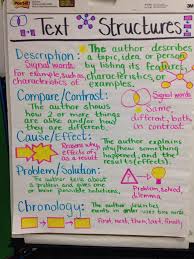 Text Structures
Description: The author describes
a topic, idea, or person
by listing its features,
characteristics, or
examples.
Signal words:
for example,
characteristics of
Compare/Contrast:
The author shows
how 2 or more things
are alike and/or how
they are different.
Signal words
Same, different,
both, in
contrast
Cause/Effect:
Reasons why
effects of,
as a result
The author explains
why/how something
happened, and the
results (effects).
Problem/Solution:
The author tells about
a problem and gives one
or more possible solutions.
Problem, solved,
dilemma
Chronology: The author
events in order
First, next, then, last, finally